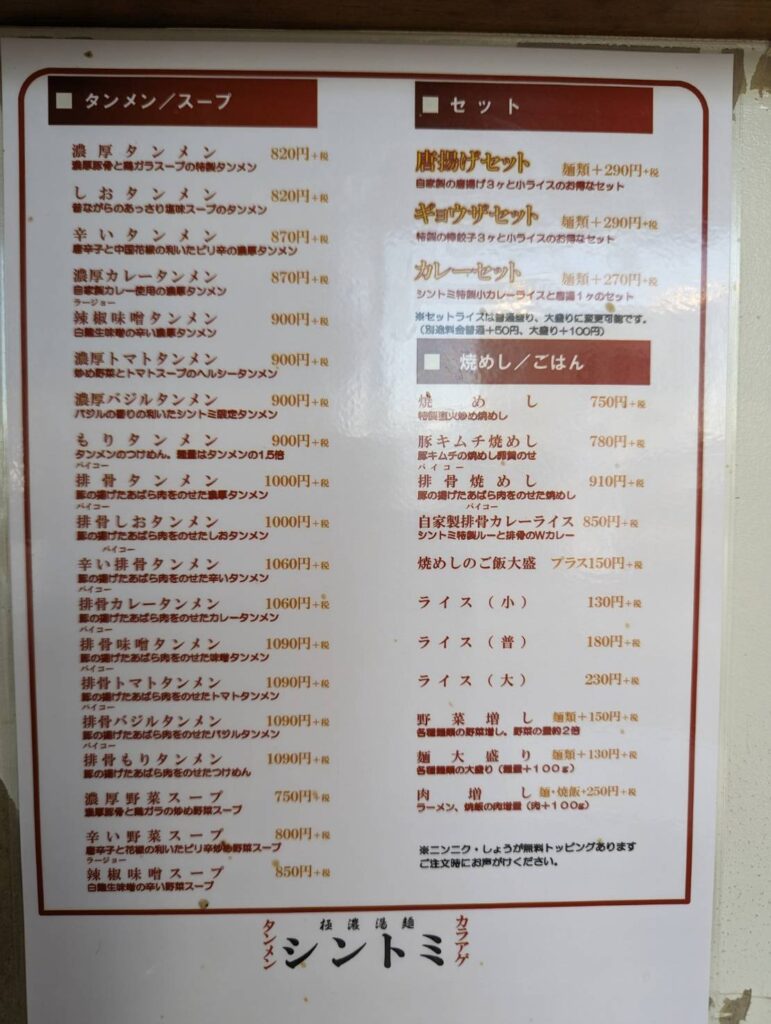 ■ タンメン／スープ
濃厚タンメン 820円+税
濃厚豚骨と鶏ガラスープの特製タンメン
しおタンメン 820円+税
昔ながらのあっさり塩味スープのタンメン
辛いタンメン 870円+税
唐辛子と中国花椒の利いたピリ辛の濃厚タンメン
濃厚カレータンメン 870円+税
自家製カレー使用の濃厚タンメン
ラージョー
辣椒味噌タンメン 900円+税
白麹生味噌の辛い濃厚タンメン
濃厚トマトタンメン 900円+税
炒め野菜とトマトスープのヘルシータンメン
濃厚バジルタンメン 900円+税
バジルの香りの利いたシントミ限定タンメン
もりタンメン 900円+税
タンメンのつけめん。麺量はタンメンの1.5倍
パイコー
排骨タンメン 1000円+税
豚の揚げたあばら肉をのせた濃厚タンメン
パイコー
排骨しおタンメン 1000円+税
豚の揚げたあばら肉をのせたしおタンメン
パイコー
辛い排骨タンメン 1060円+税
豚の揚げたあばら肉をのせた辛いタンメン
パイコー
排骨カレータンメン 1060円+税
豚の揚げたあばら肉をのせたカレータンメン
パイコー
排骨味噌タンメン 1090円+税
豚の揚げたあばら肉をのせた味噌タンメン
パイコー
排骨トマトタンメン 1090円+税
豚の揚げたあばら肉をのせたトマトタンメン
パイコー
排骨バジルタンメン 1090円+税
豚の揚げたあばら肉をのせたバジルタンメン
パイコー
排骨もりタンメン 1090円+税
豚の揚げたあばら肉をのせたつけめん
濃厚野菜スープ 750円+税
濃厚豚骨と鶏ガラの炒め野菜スープ
辛い野菜スープ 800円+税
唐辛子と花椒の利いたピリ辛炒め野菜スープ
ラージョー
辣椒味噌スープ 850円+税
白麹生味噌の辛い野菜スープ
■ セット
唐揚げセット 麺類＋290円+税
自家製の唐揚げ３ヶと小ライスのお得なセット
ギョウザセット 麺類＋290円+税
特製の棒餃子３ヶと小ライスのお得なセット
カレーセット 麺類＋270円+税
シントミ特製小カレーライスと唐揚１ヶのセット
※セットライスは普通盛り、大盛りに変更可能です。
（別途料金普通+50円、大盛り+100円）
■ 焼めし／ごはん
焼めし 750円+税
特製直火炒め焼めし
豚キムチ焼めし 780円+税
豚キムチの焼めし
パイコー
排骨焼めし 910円+税
豚の揚げたあばら肉をのせた焼めし
パイコー
自家製排骨カレーライス 850円+税
シントミ特製ルーと排骨のWカレー
焼めしのご飯大盛 プラス150円+税
ライス（小） 130円+税
ライス（普） 180円+税
ライス（大） 230円+税
野菜増し 麺類＋150円+税
各種麺類の野菜増し。野菜の量約２倍
麺大盛り 麺類＋130円+税
各種麺類の大盛り（麺量+100g）
肉増し 麺・焼飯+250円+税
ラーメン、焼飯の肉増量（肉+100g）
※ニンニク・しょうが無料トッピングあります
ご注文時にお声がけください。
タンメン
極濃湯麺
シントミ
カラアゲ